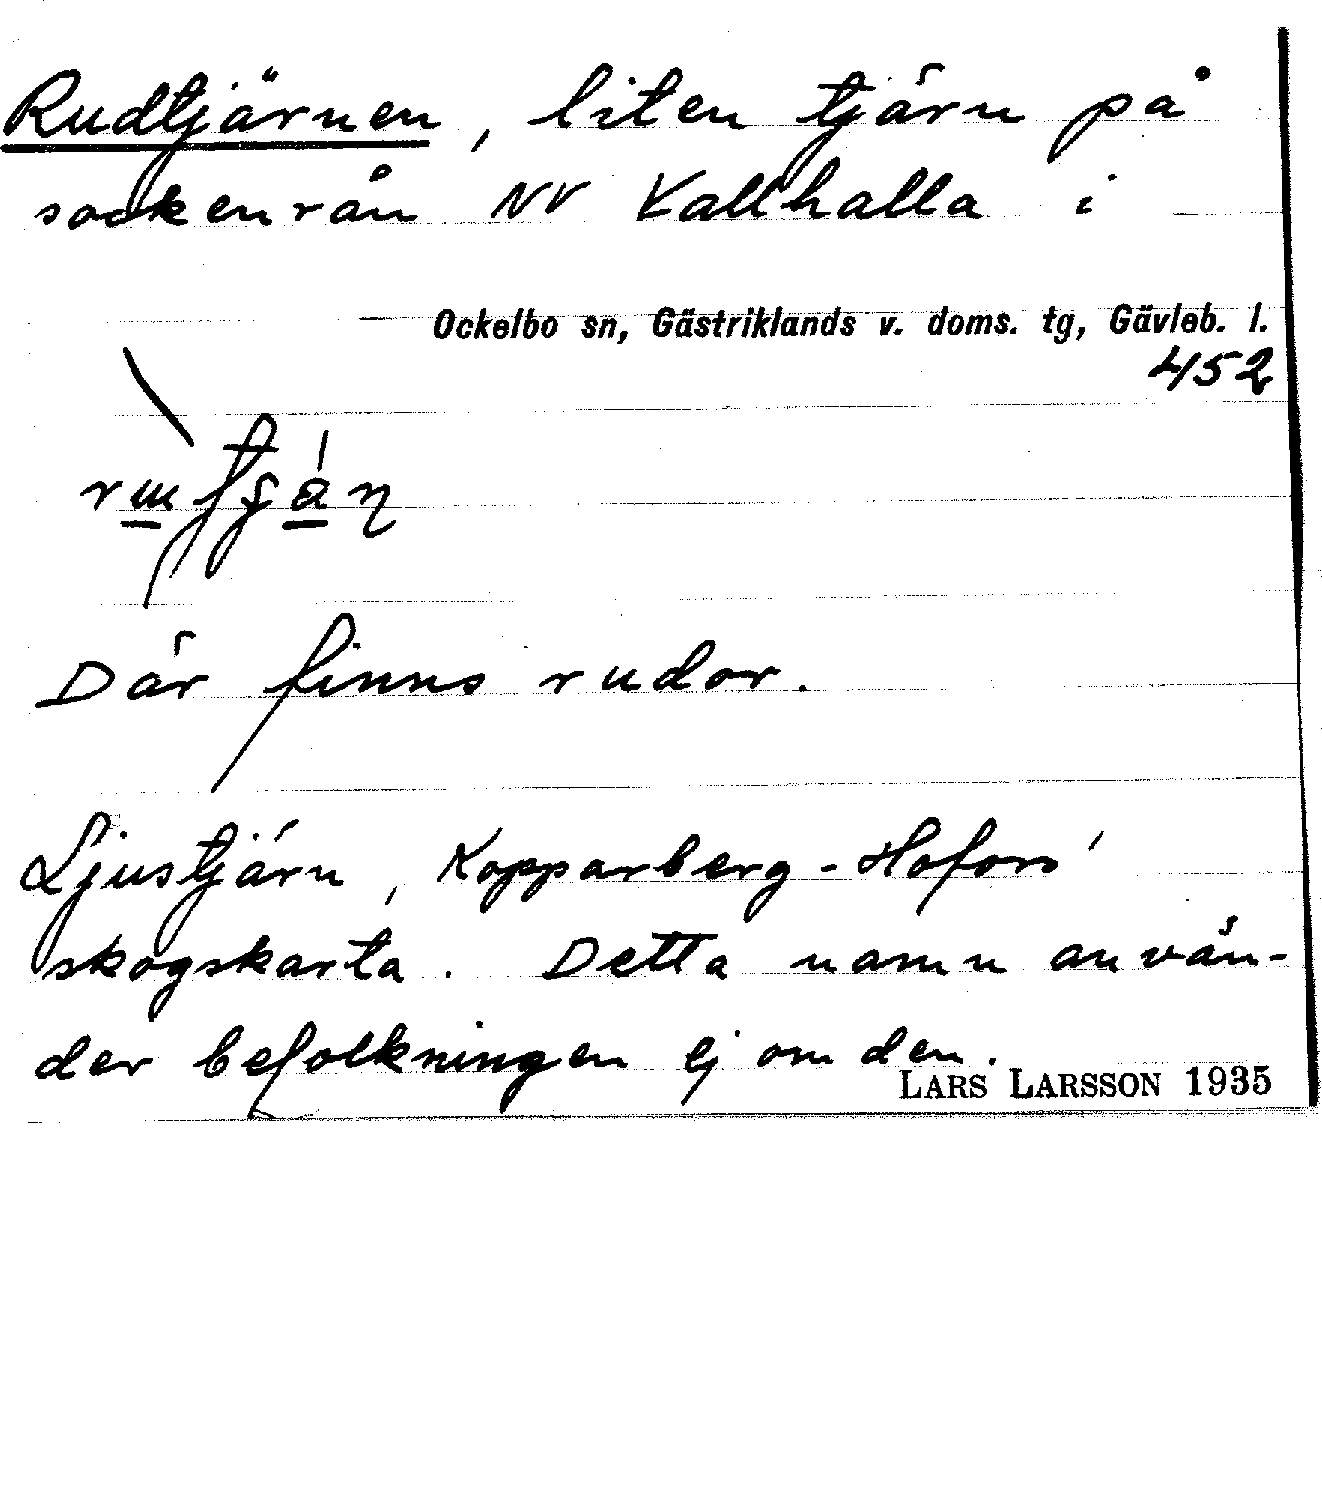 Rudtjärnen, liten tjärn på
sockenrån NV Vallhalla i
Ockelbo sn, Gästriklands v. doms. tg, Gävleb. l.
452
Där finns rudor.
Ljustjärn, Kopparberg-Hofors'
skogskarta. Detta namn använ-
der befolkningen ej om den.
LARS LARSSON 1935